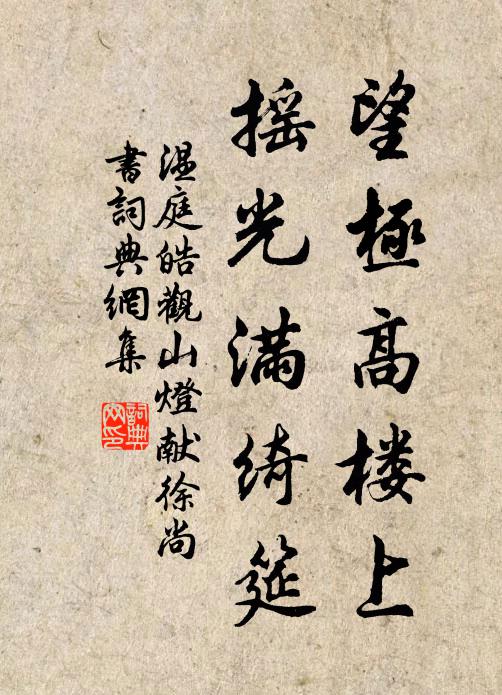 望極高楼上
摇光满绮筵
温庭皓觀山燈献徐尚
書詞典網集
詞典网印